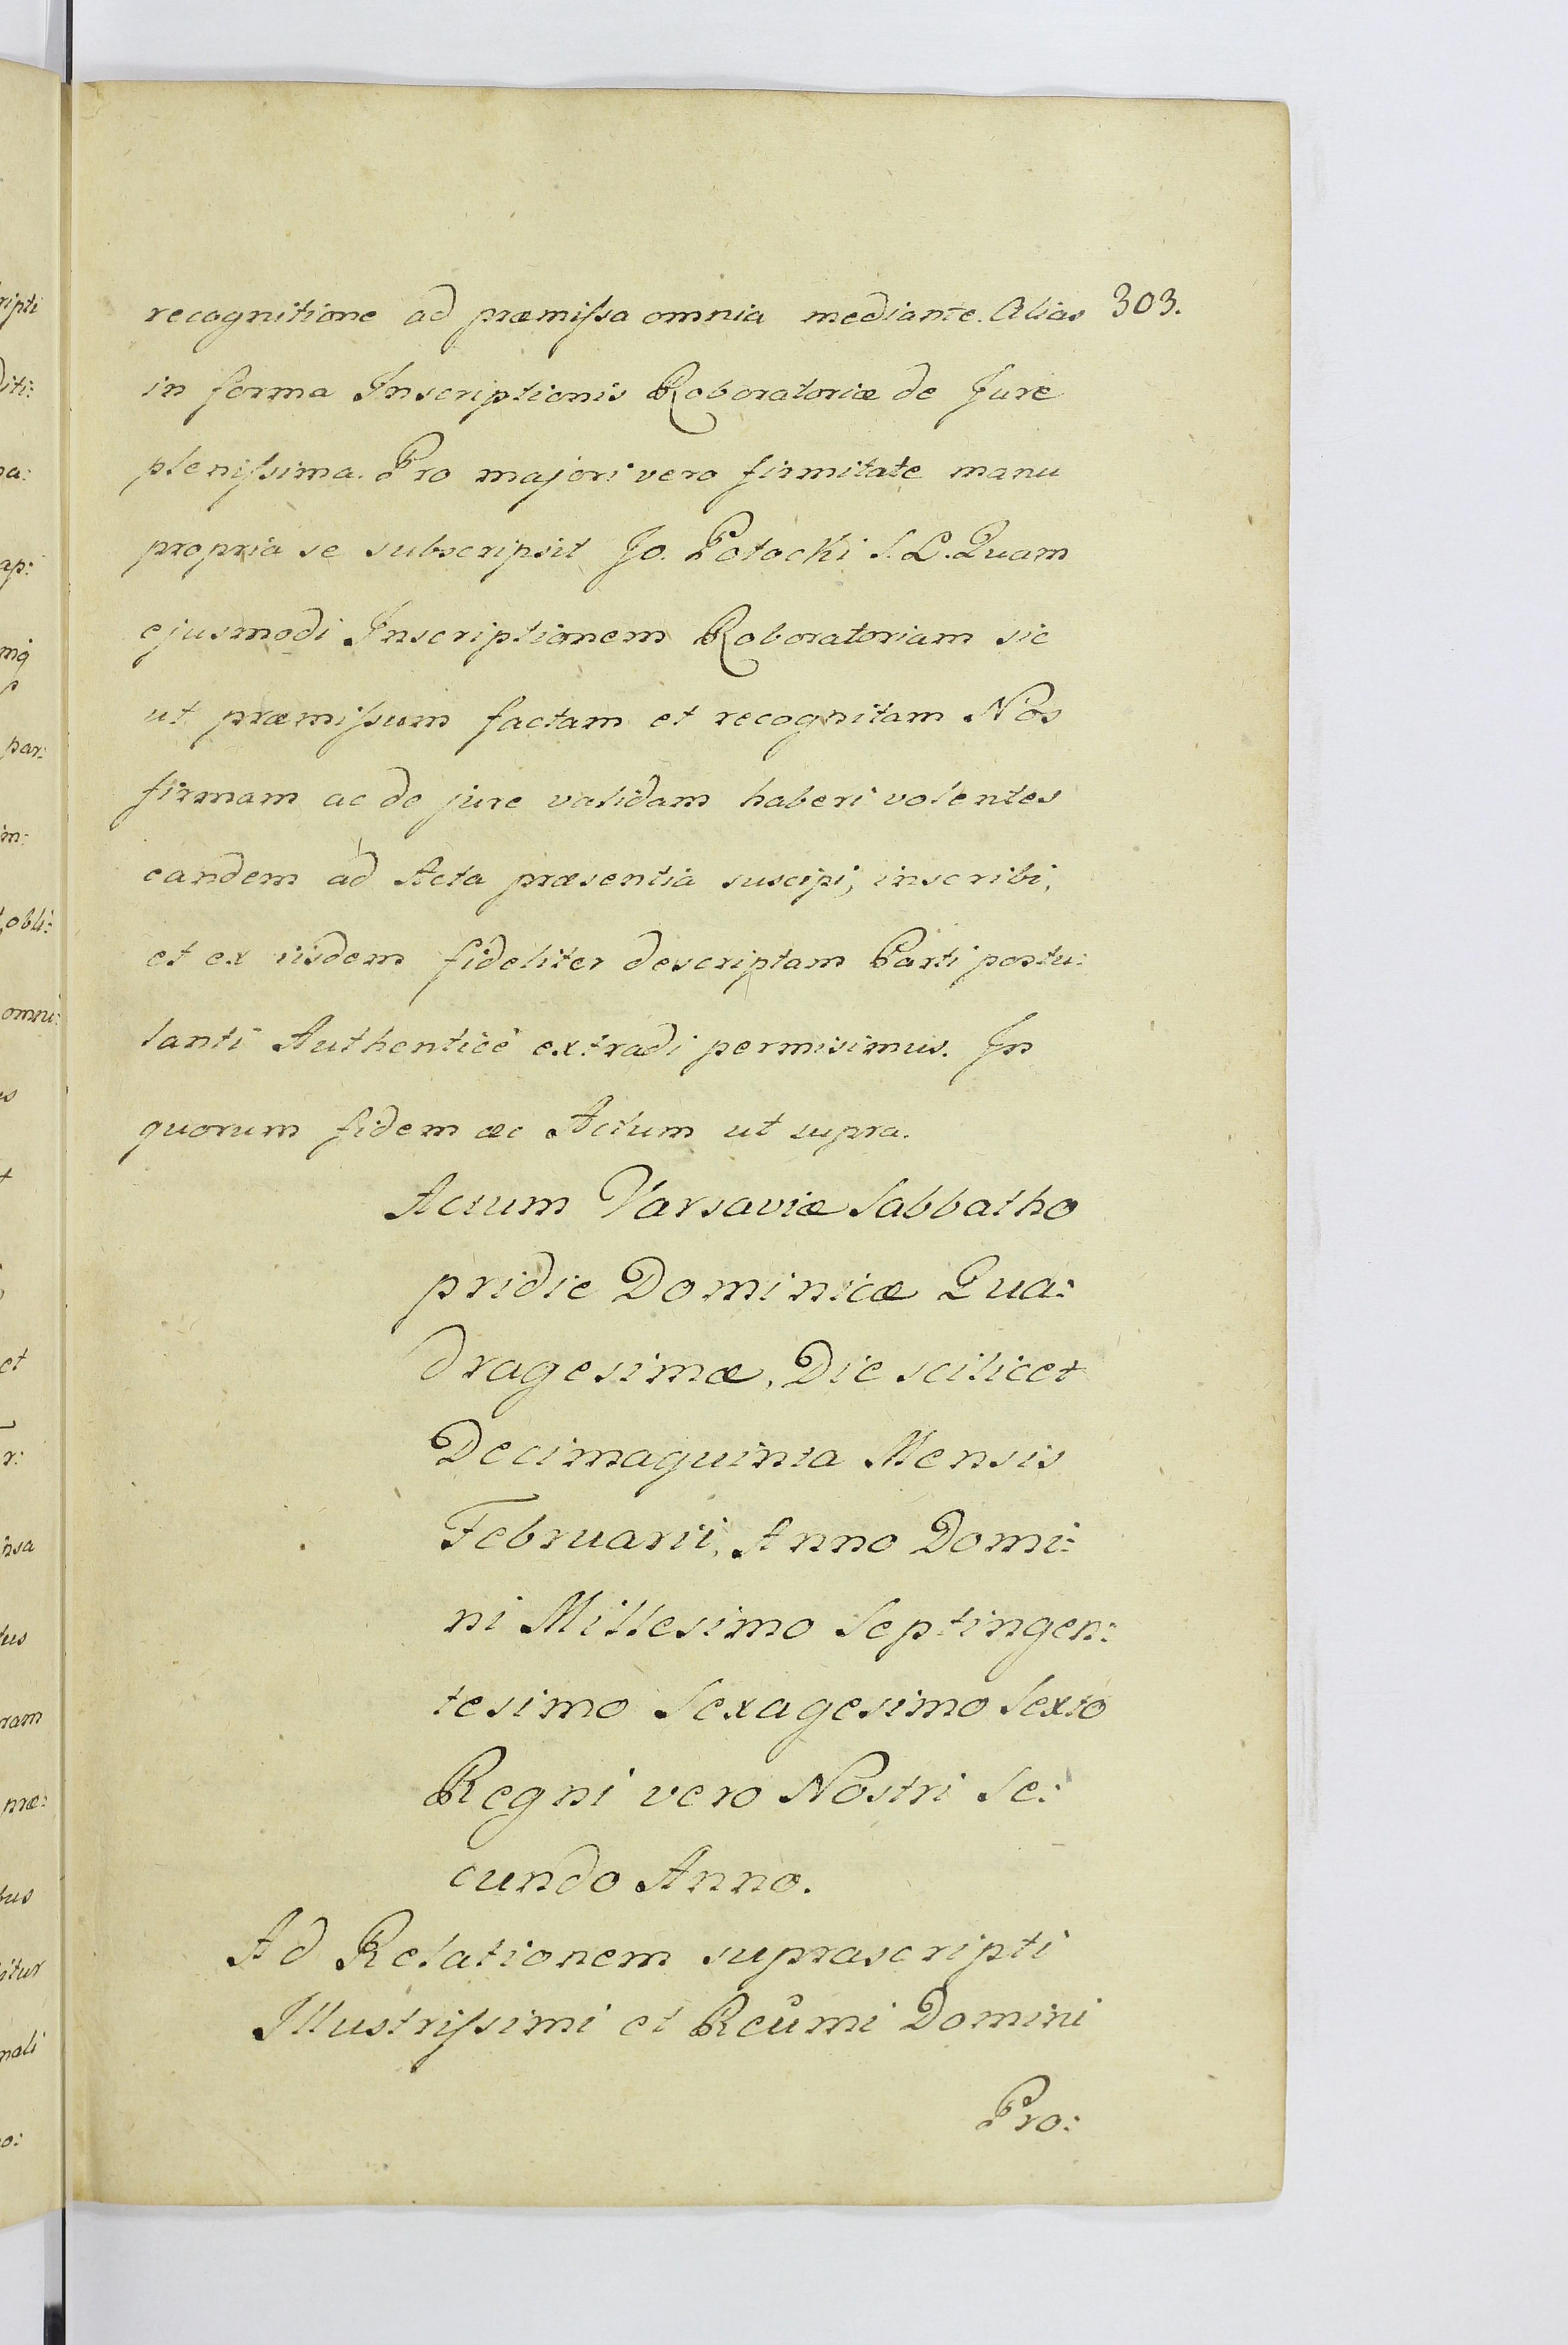 recognitione ad præmiſsa omnia mediante. Alias 303.
in forma Inscriptionis Roboratoriæ de Jure
pleniſsima. Pro majori vero firmitate manu
propria se subscripsit Jo. Potocki S. L. Quam
ejusmodi Inscriptionem Roboratoriam sic
ut præmiſsum factam et recognitam Nos
firmam ac de jure validam haberi volentes
eandem ad Acta præsentia suscipi, inscribi,
et ex iisdem fideliter descriptam Parti postu:
lanti Authenticè extradi permisimus. In
quorum fidem &c Actum ut supra.
Actum Varsaviæ Sabbatho
pridie Dominicæ Qua:
dragesimæ, Die scilicet
Decimaquinta Mensis
Februarii, Anno Domi:
ni Millesimo Septingen:
tesimo Sexagesimo Sexto
Regni vero Nostri Se:
cundo Anno.
Ad Relationem suprascripti
Illustriſsimi et Reũmi Domini
Pro: